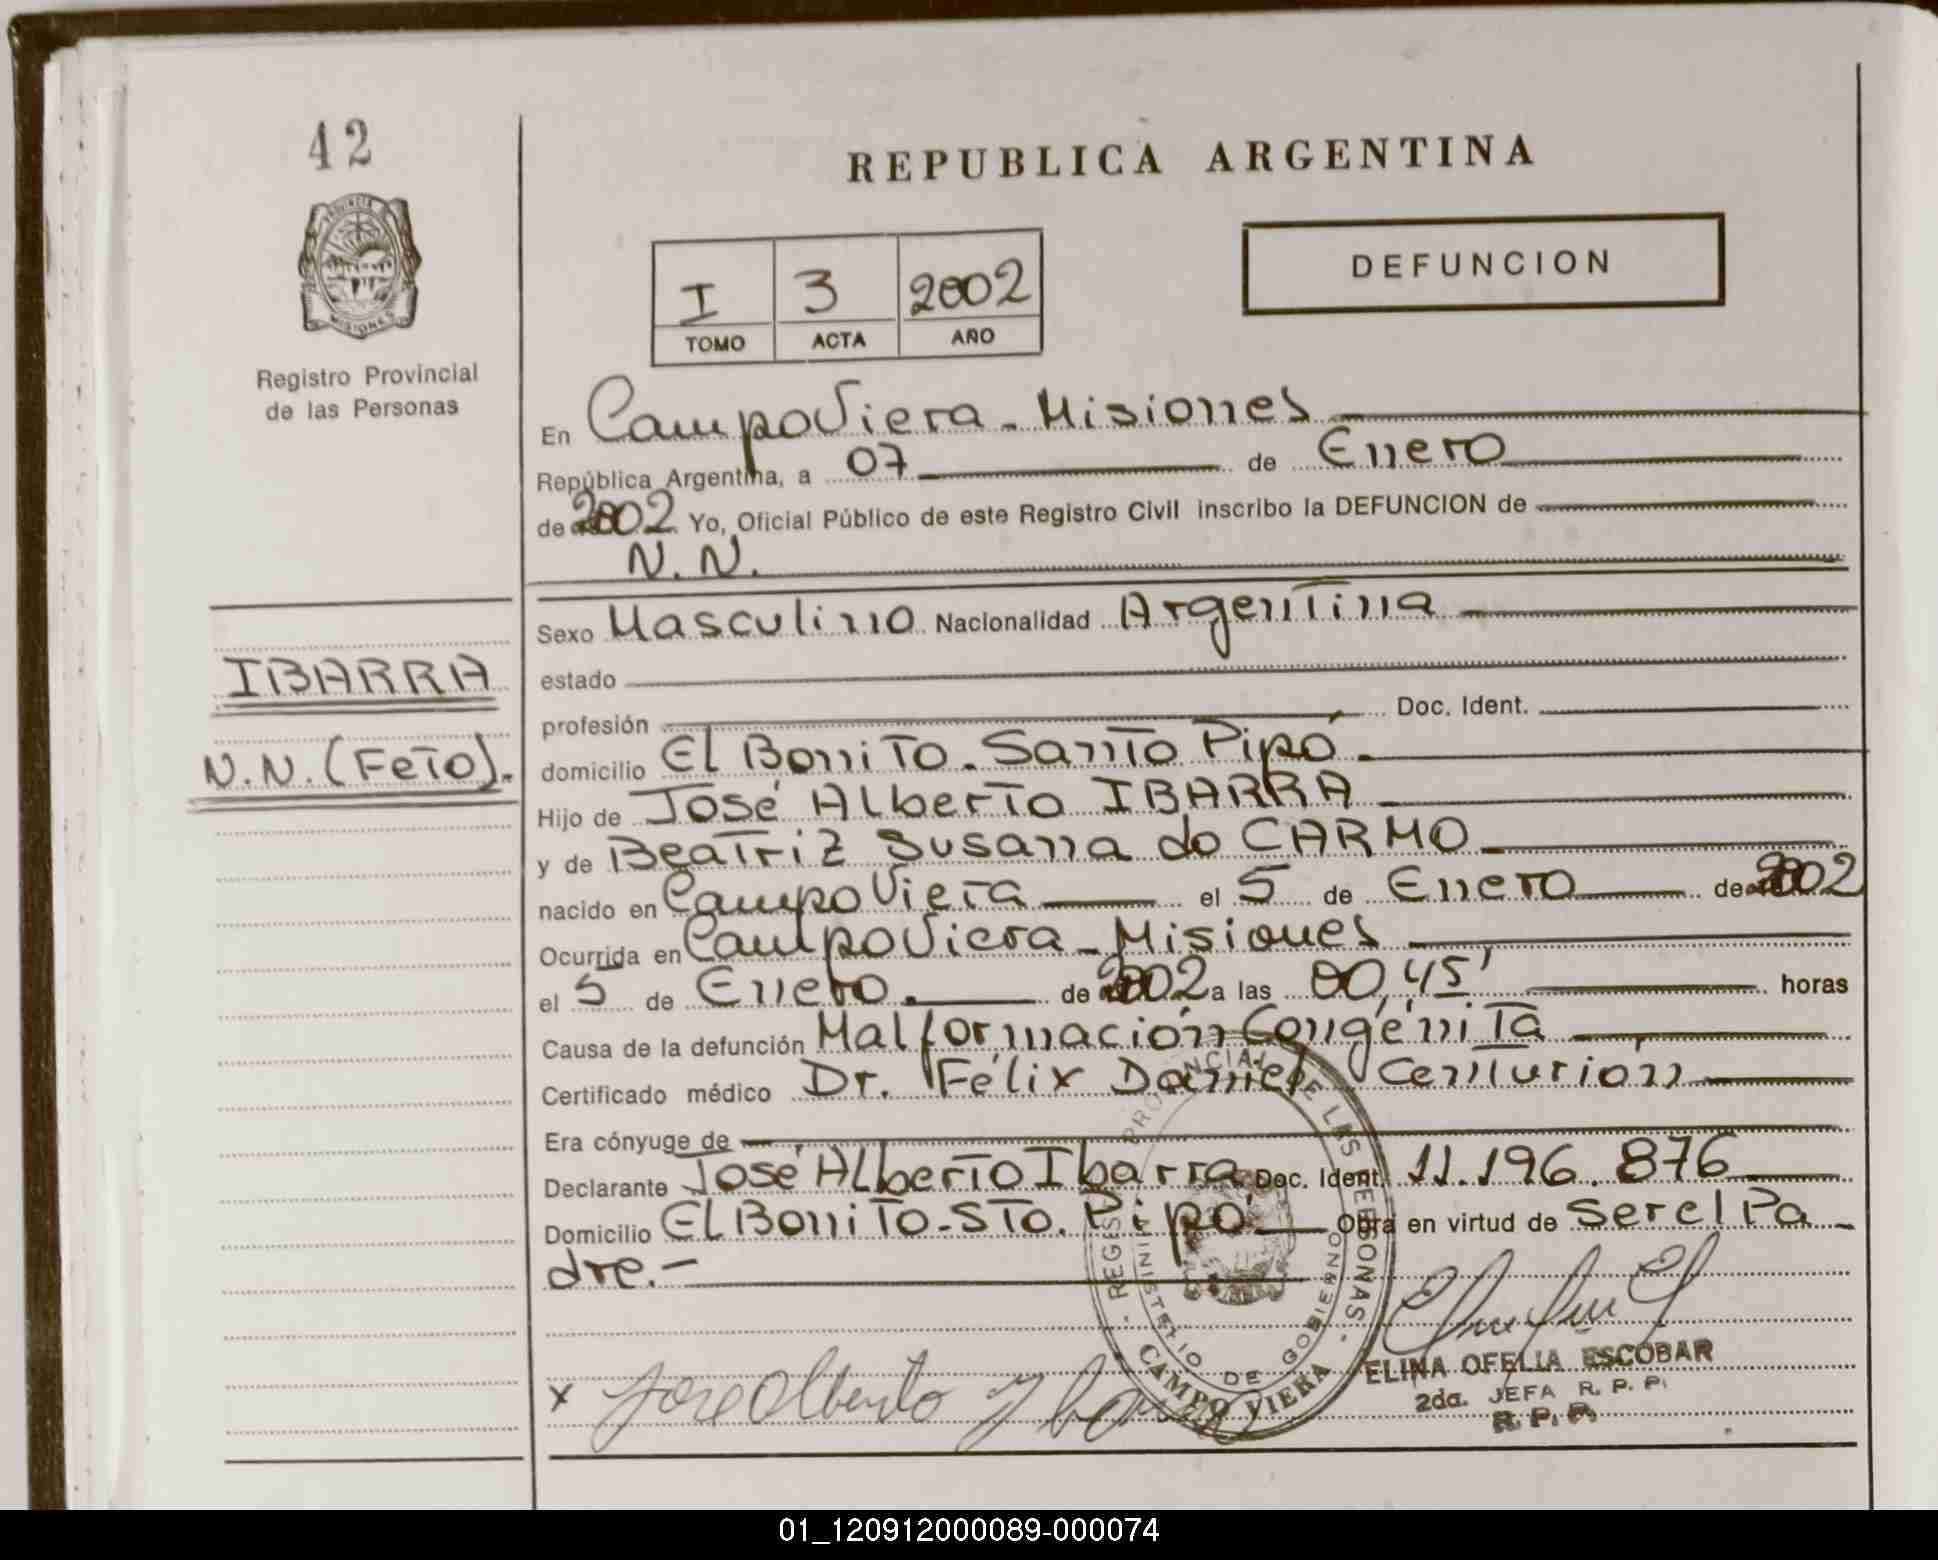 42
REPUBLICA ARGENTINA
PROVINCIA DE
MISIONES
Registro Provincial
de las Personas
I 3 2002
TOMO ACTA AÑO
DEFUNCION
En Campo Viera - Misiones
República Argentina, a 07 de Enero
de 2002 Yo, Oficial Público de este Registro Civil inscribo la DEFUNCION de
N. N.
Sexo Masculino Nacionalidad Argentina
estado
profesión Doc. Ident.
domicilio El Bonito - Santo Pipó
Hijo de José Alberto IBARRA
y de Beatriz Susana do CARMO
nacido en Campo Viera el 5 de Enero de 2002
Ocurrida en Campo Viera - Misiones
el 5 de Enero de 2002 a las 00,45' horas
Causa de la defunción Malformación Congénita
Certificado médico Dr. Félix Daniel Centurión
Era cónyuge de
Declarante José Alberto Ibarra Doc. Ident. 11.196.876
Domicilio El Bonito - Sto. Pipó Obra en virtud de ser el Pa
dre.-
IBARRA
N.N. (Feto).
REGISTRO PROVINCIAL DE LAS PERSONAS
MINISTERIO DE GOBIERNO
CAMPO VIERA
x Jose Alberto Ibarra
ELINA OFELIA ESCOBAR
2da. JEFA R. P. P.
R. P. P.
01_120912000089-000074